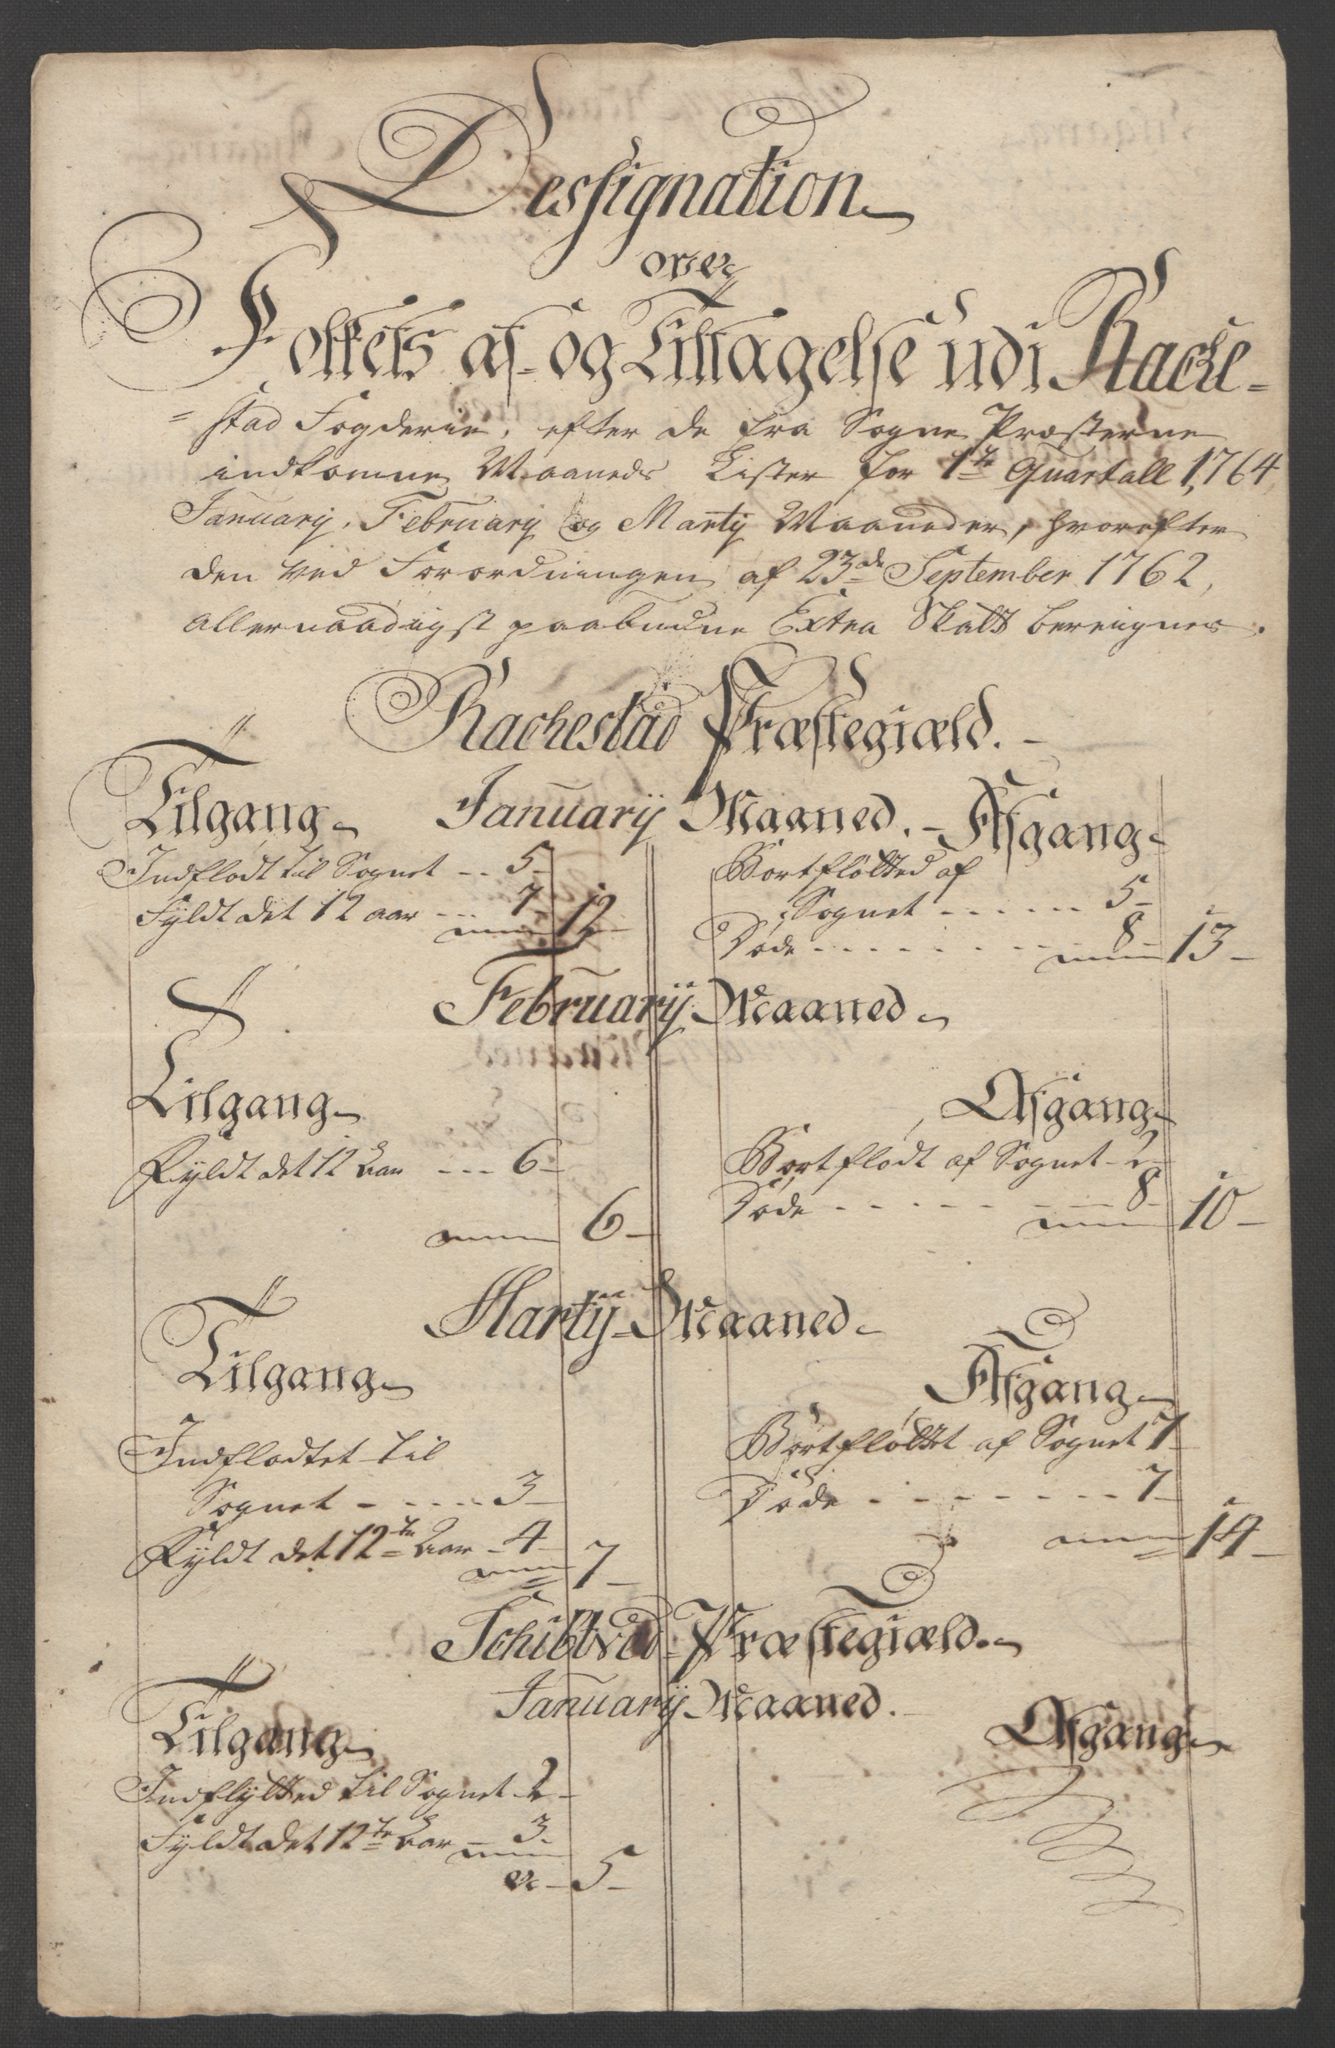 Dessignation
over
Folkets af- og Tiltagelse udi Racke-
=stad Fogderie, efter de fra Sogne Præsterne
indkomne Maaneds Lister for 1te Quartall 1764,
Januarij, Februarij og Martij Maaneder, hvorefter
den ved Forordningen af 23de September 1762,
allernaadigst paabudne Extra Skatt bereignes.
Rachestad Præstegiæld.
Januarij Maaned.
Tilgang
Indflödt til Sognet .. 5
Fyldt det 12 aar ... 7
12
Afgang
Bortflötted af
Sognet ...... 5
Döde ....... 8
13
Februarij Maaned
Tilgang
Fyldt det 12 Aar ... 6
6
Afgang
Bortflödt af Sognet - 2
Döde ...... 8
10
Martij Maaned
Tilgang
Indflödtet til
Sognet ..... 3
Fyldt det 12te Aar - 4
7
Afgang
Bortflöttet af Sognet 7
Döde ....... 7
14
Schibtved Præstegiæld.
Januarij Maaned.
Tilgang
Indflytted til Sognet 2
Fyldt det 12te Aar - 3.
er - 5
Afgang